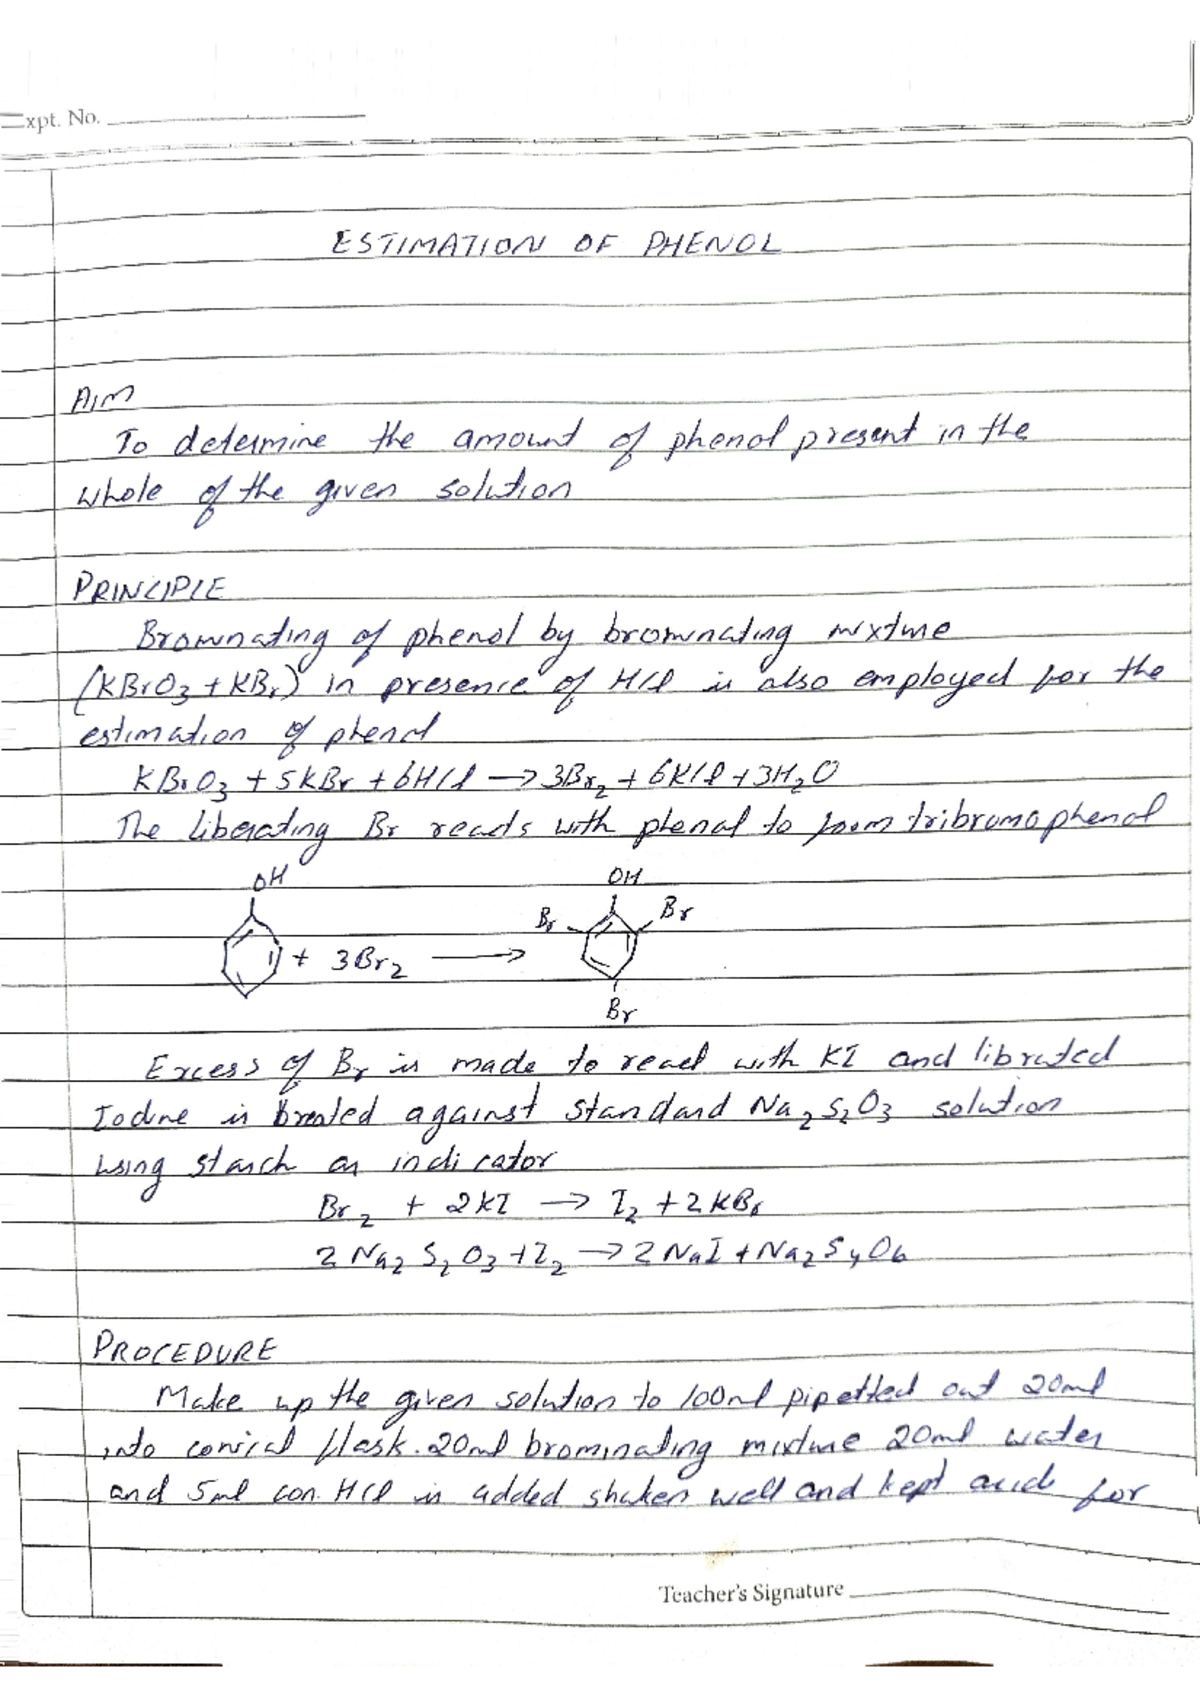 Expt. No.
ESTIMATION OF PHENOL
AIM
To determine the amount of phenol present in the
whole of the given solution
PRINCIPLE
Brominating of phenol by brominating mixture
(KBrO3 + KBr) in presence of HCl is also employed for the
estimation of phenol
KBrO3 + 5KBr + 6HCl → 3Br2 + 6KCl + 3H2O
The liberating Br reacts with phenol to form tribromophenol
OH OH
Br Br
+ 3Br2 →
Br
Excess of Br is made to react with KI and librated
Iodine is treated against standard Na2S2O3 solution
using starch as indicator
Br2 + 2KI → I2 + 2KBr
2Na2S2O3 + I2 → 2NaI + Na2S4O6
PROCEDURE
Make up the given solution to 100ml pipetted out 20ml
into conical flask. 20ml brominating mixture 20ml water
and 5ml con. HCl is added shaken well and kept for
Teacher's Signature